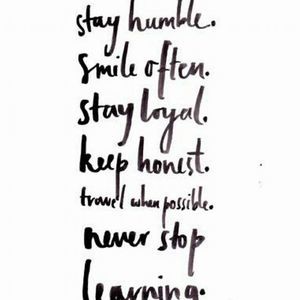 stay humble.
smile often.
stay loyal.
keep honest.
travel when possible.
never stop
learning.